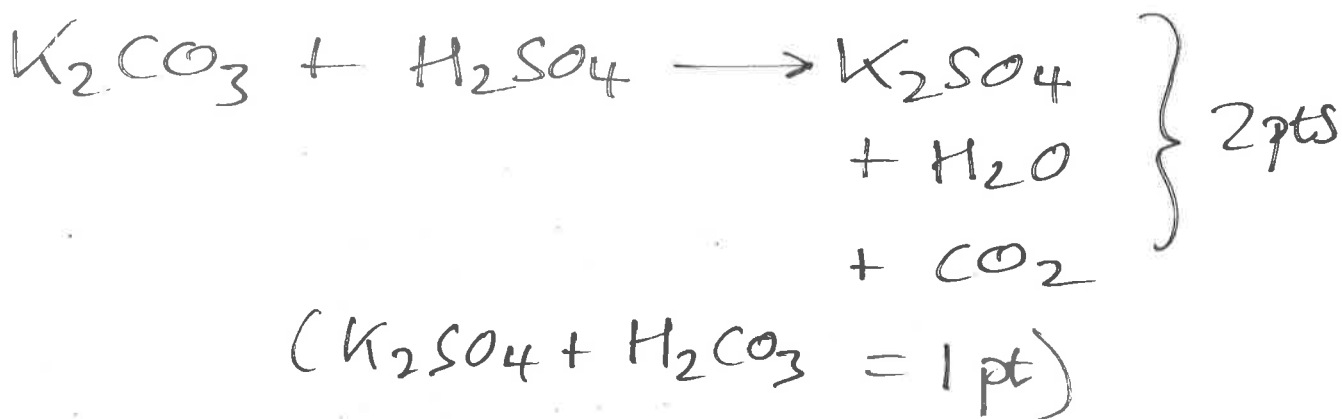 K₂CO₃ + H₂SO₄ → K₂SO₄
+ H₂O
+ CO₂
} 2pts
(K₂SO₄ + H₂CO₃ = 1 pt)